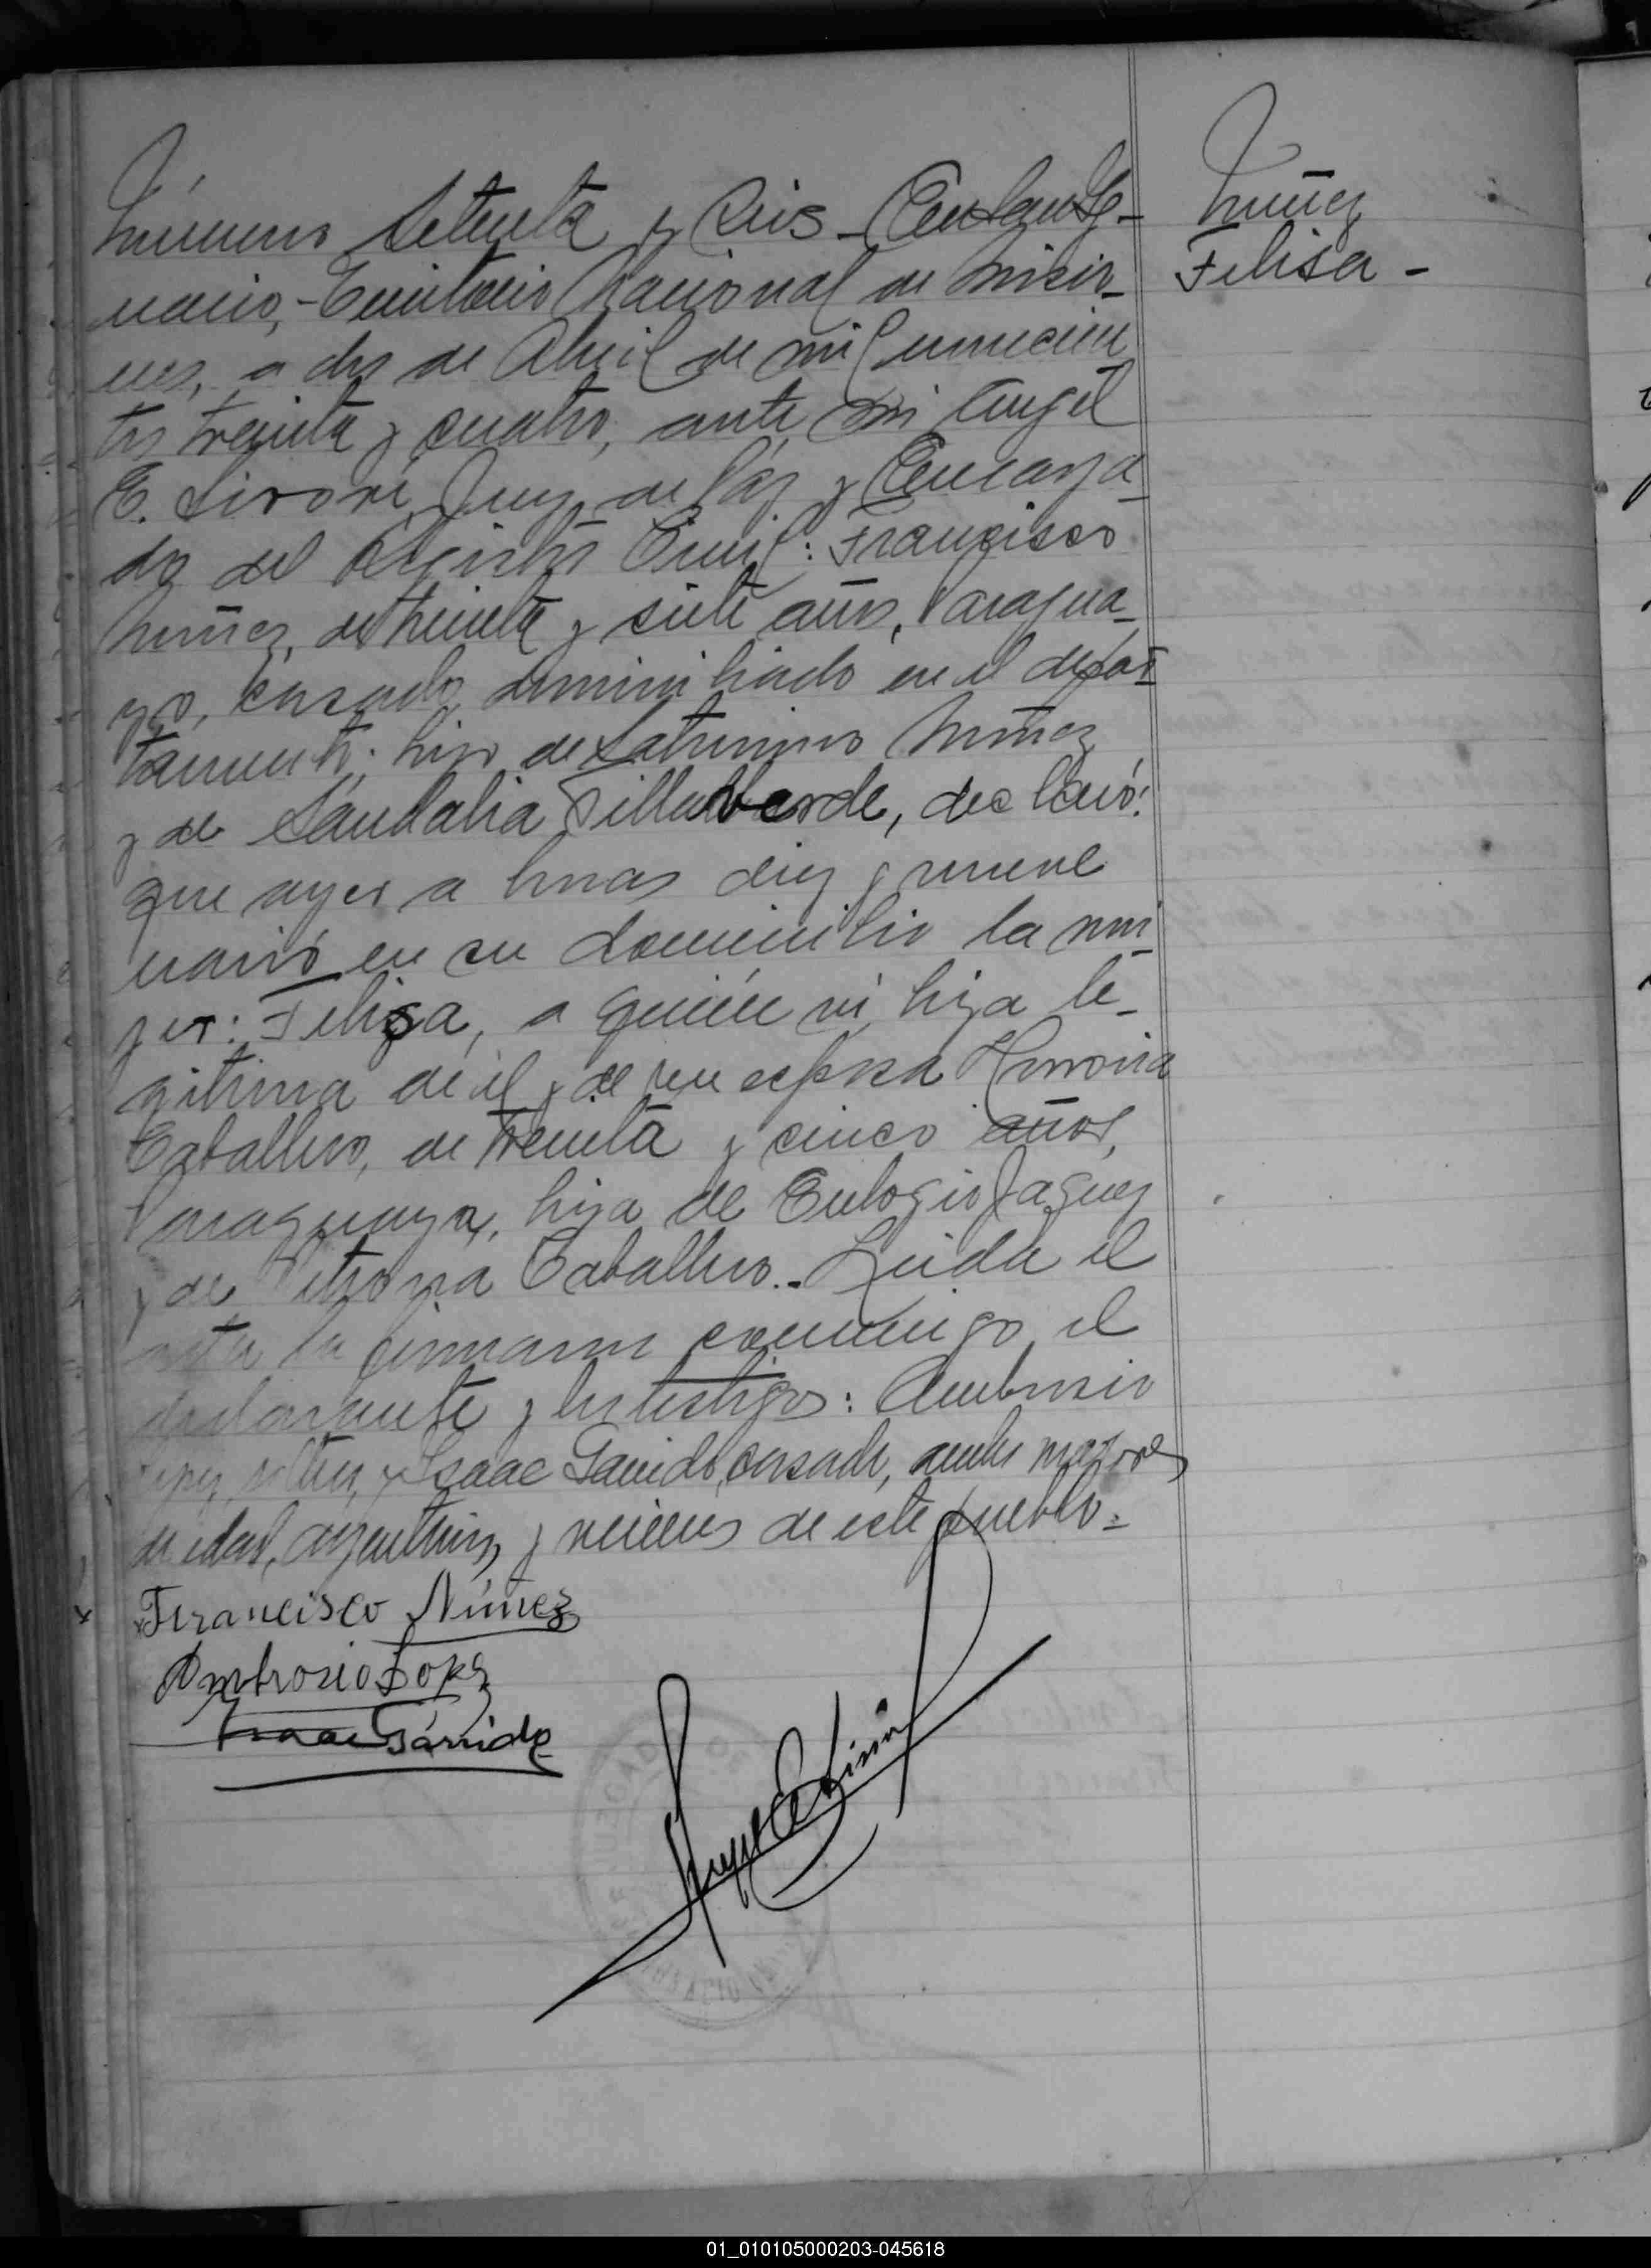 Número setenta y seis - En San Ig-
nacio, - Territorio Nacional de Misio-
nes, a dos de Abril de mil novecien
tos treinta y cuatro, ante mi Angel
E. Sivori, Juez de Páz y Encarga-
do del Registro Civil: Francisco
Núñez, de treinta y siete años, Paragua-
yo, casado, domiciliado en el depar-
tamento; hijo de Saturnino Núñez
y de Sandalia Villaverde, declaró:
que ayer a horas diez y nueve
nació en su domicilio la mu-
jer: Felisa, a quién vi, hija le-
gitima de él y de su esposa
Caballero, de treinta y cinco años,
Paraguaya, hija de Eulogio
y de Petrona Caballero. - Leida el
acta la firmaron conmigo el
declarante y los testigos: Ambrosio
Lopez, soltero, y Isaac Garrido, casado, ambos mayores
de edad, argentinos, y vecinos de este pueblo. -
Francisco Núñez
Ambrosio Lopez
Isaac Garrido
Angel E. Sivori
Núñez
Felisa -
JUZGADO DE
01_010105000203-045618